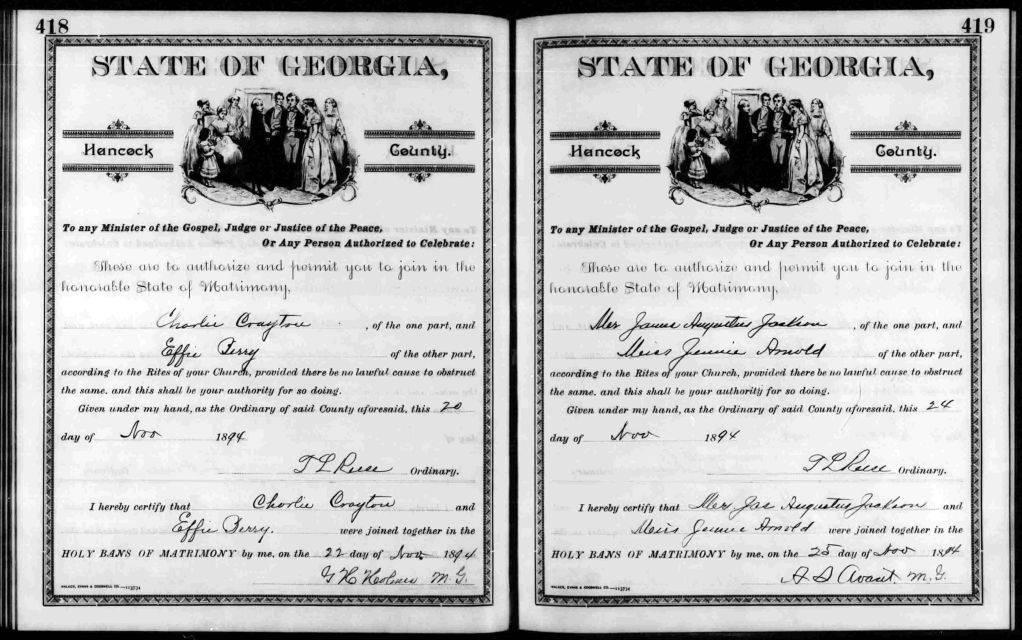 418
STATE OF GEORGIA,
Hancock County.
To any Minister of the Gospel, Judge or Justice of the Peace,
Or Any Person Authorized to Celebrate:
These are to authorize and permit you to join in the
honorable State of Matrimony,
Charlie Crayton , of the one part, and
Effie Berry of the other part,
according to the Rites of your Church, provided there be no lawful cause to obstruct
the same. and this shall be your authority for so doing.
Given under my hand, as the Ordinary of said County aforesaid, this 20
day of Nov 1894
T L Reese Ordinary.
I hereby certify that Charlie Crayton and
Effie Berry. were joined together in the
HOLY BANS OF MATRIMONY by me, on the 22 day of Nov 1894
G H Holmes M. G.
419
STATE OF GEORGIA,
Hancock County.
To any Minister of the Gospel, Judge or Justice of the Peace,
Or Any Person Authorized to Celebrate:
These are to authorize and permit you to join in the
honorable State of Matrimony,
Mr James Augustus Jackson , of the one part, and
Miss Jennie Arnold of the other part,
according to the Rites of your Church, provided there be no lawful cause to obstruct
the same. and this shall be your authority for so doing.
Given under my hand, as the Ordinary of said County aforesaid, this 24
day of Nov 1894
T L Reese Ordinary.
I hereby certify that Mr Jas Augustus Jackson and
Miss Jennie Arnold were joined together in the
HOLY BANS OF MATRIMONY by me, on the 25 day of Nov 1894
A S Avant M. G.